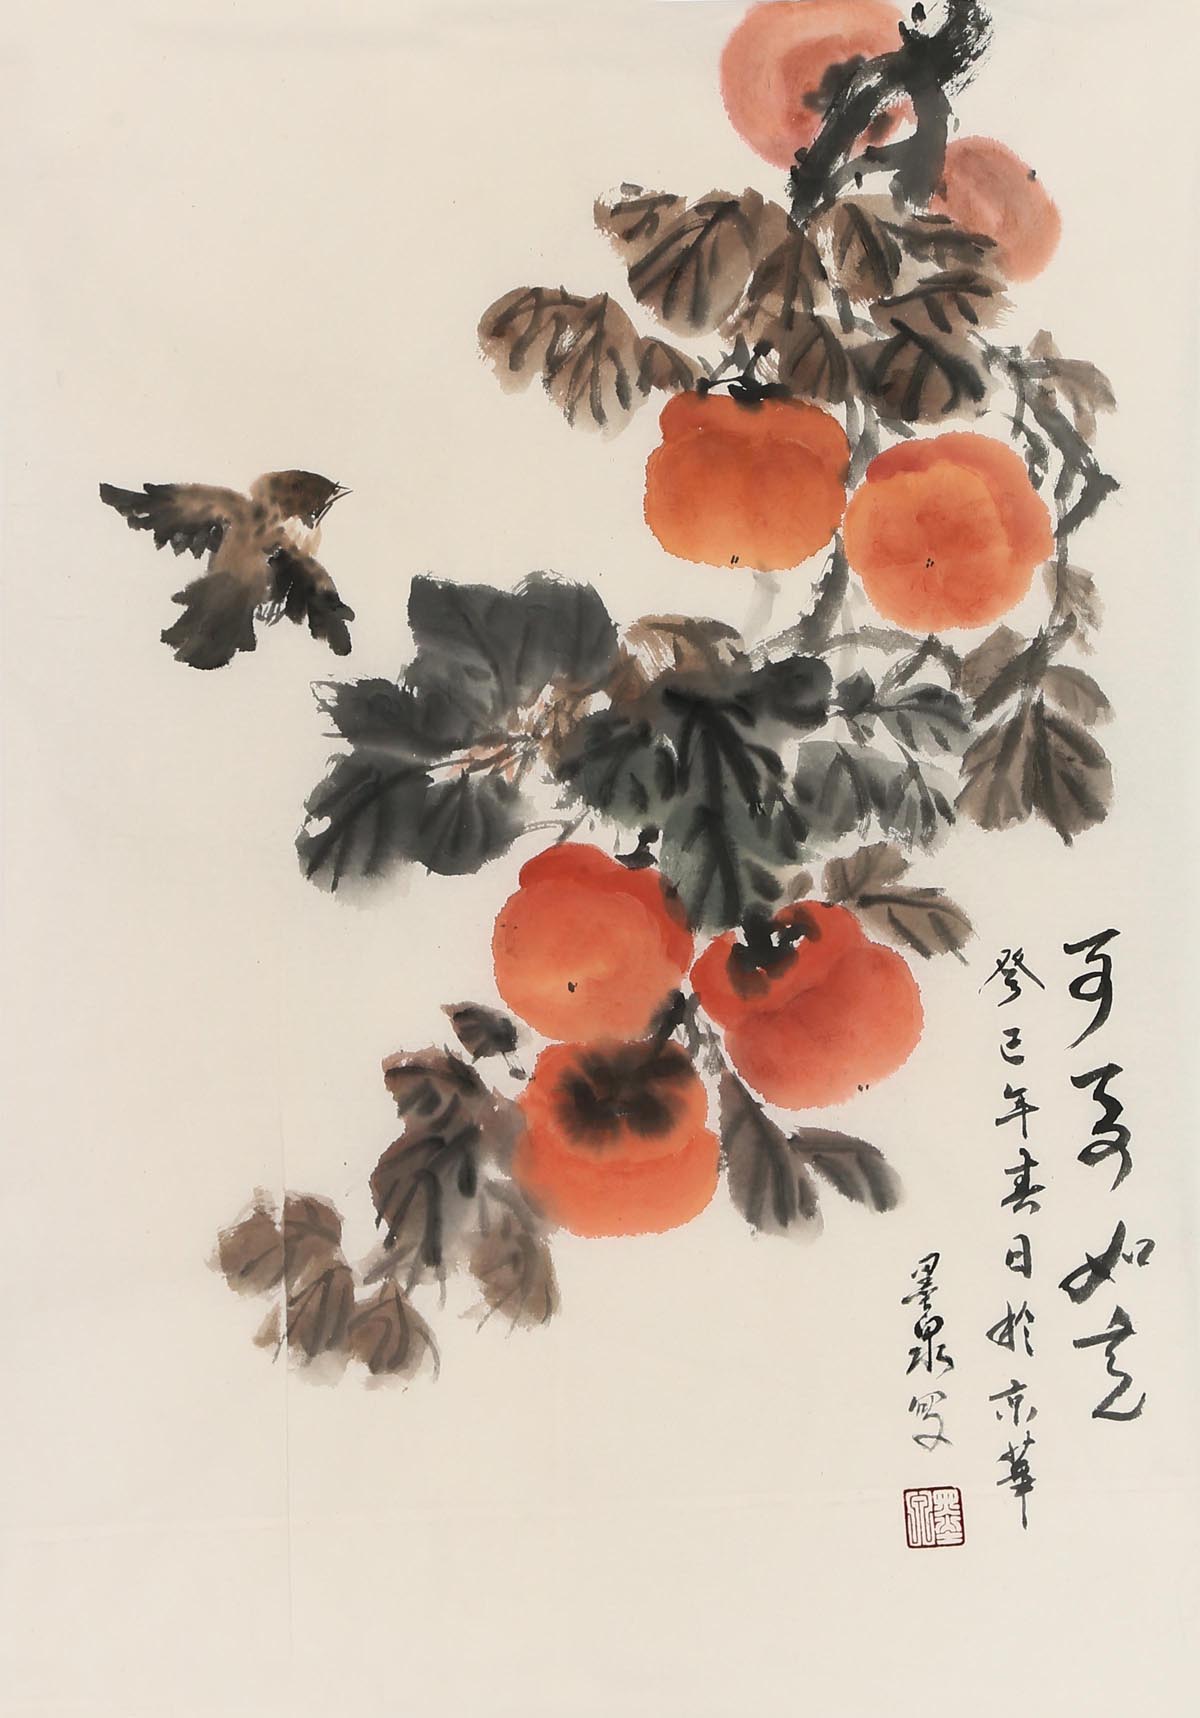 事事如意
癸巳年春日於京華
墨泉寫
墨泉